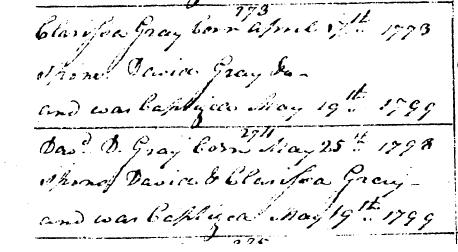 273
Clarissa Gray born April 17th 1773
Spons David Gray &c
and was Baptized May 19th 1799
274
Dav.d D. Gray born May 25th 1798
Spons David & Clarissa Gray
and was Baptized May 19th 1799
275